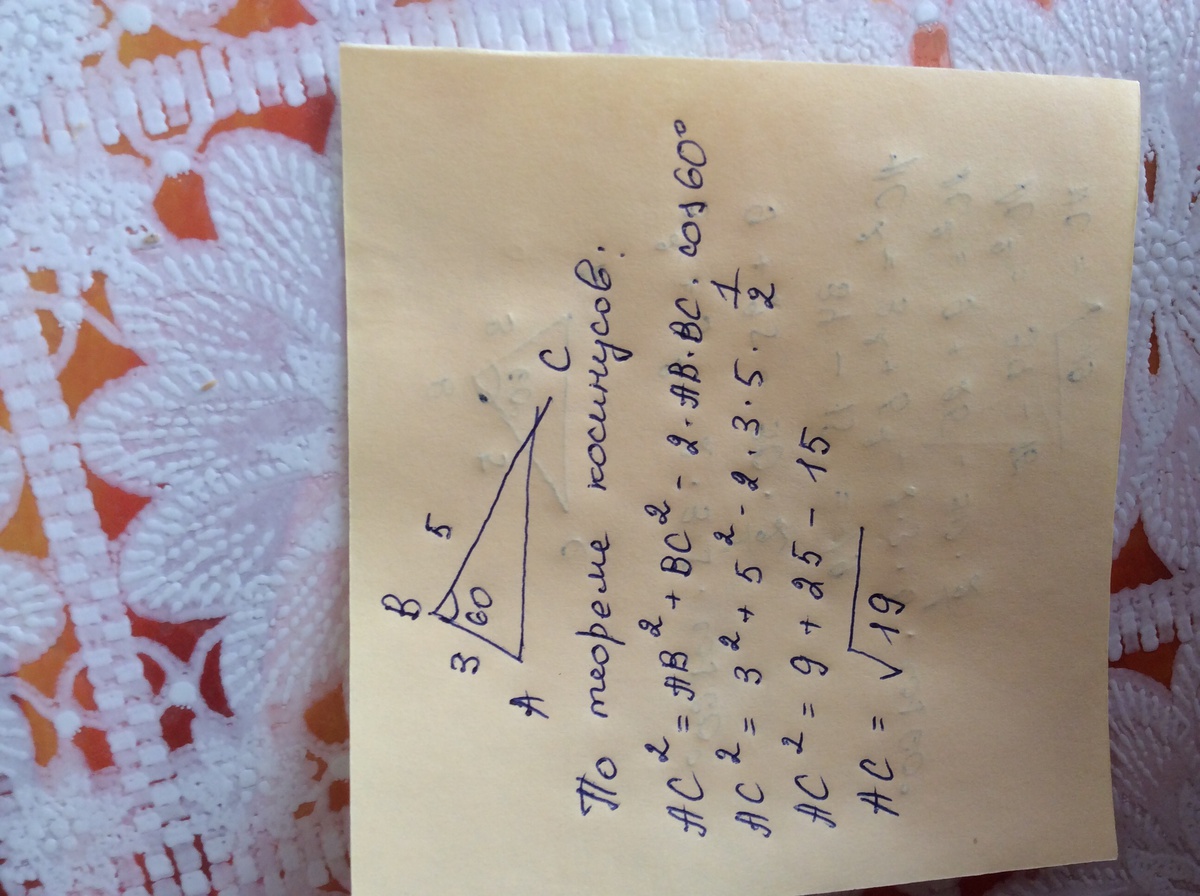 B
3
60
5
A
C
По теореме косинусов:
AC² = AB² + BC² - 2 · AB · BC · cos 60°
AC² = 3² + 5² - 2 · 3 · 5 · 1/2
AC² = 9 + 25 - 15
AC = √19